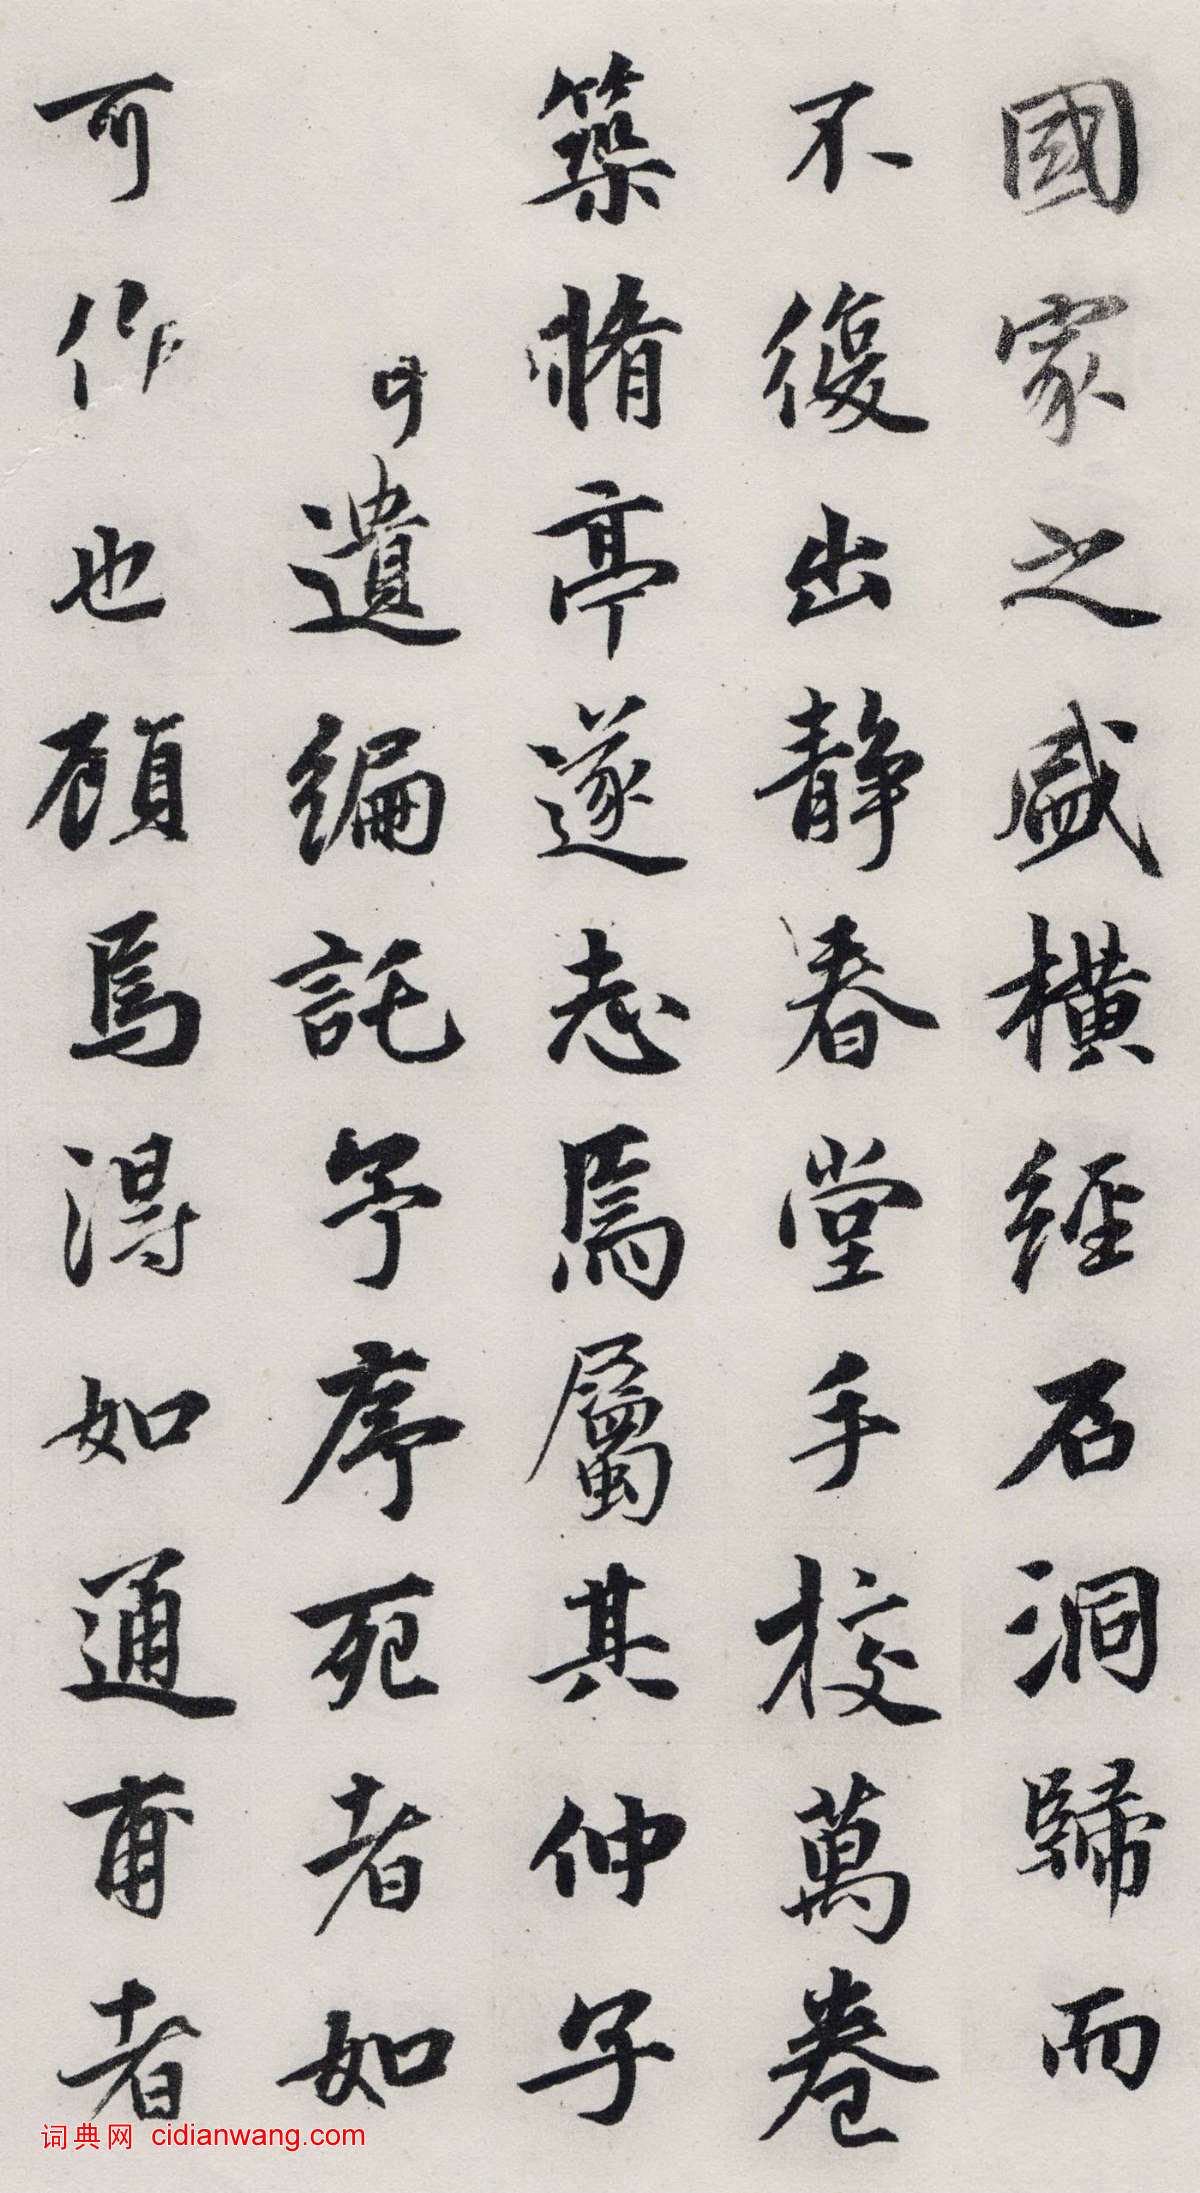 國家之盛橫經石洞歸而
不復出靜春堂手校萬卷
築脩亭遂志焉屬其仲子
遺編託予序死者如
可作也顧焉得如通甫者
词典网 cidianwang.com